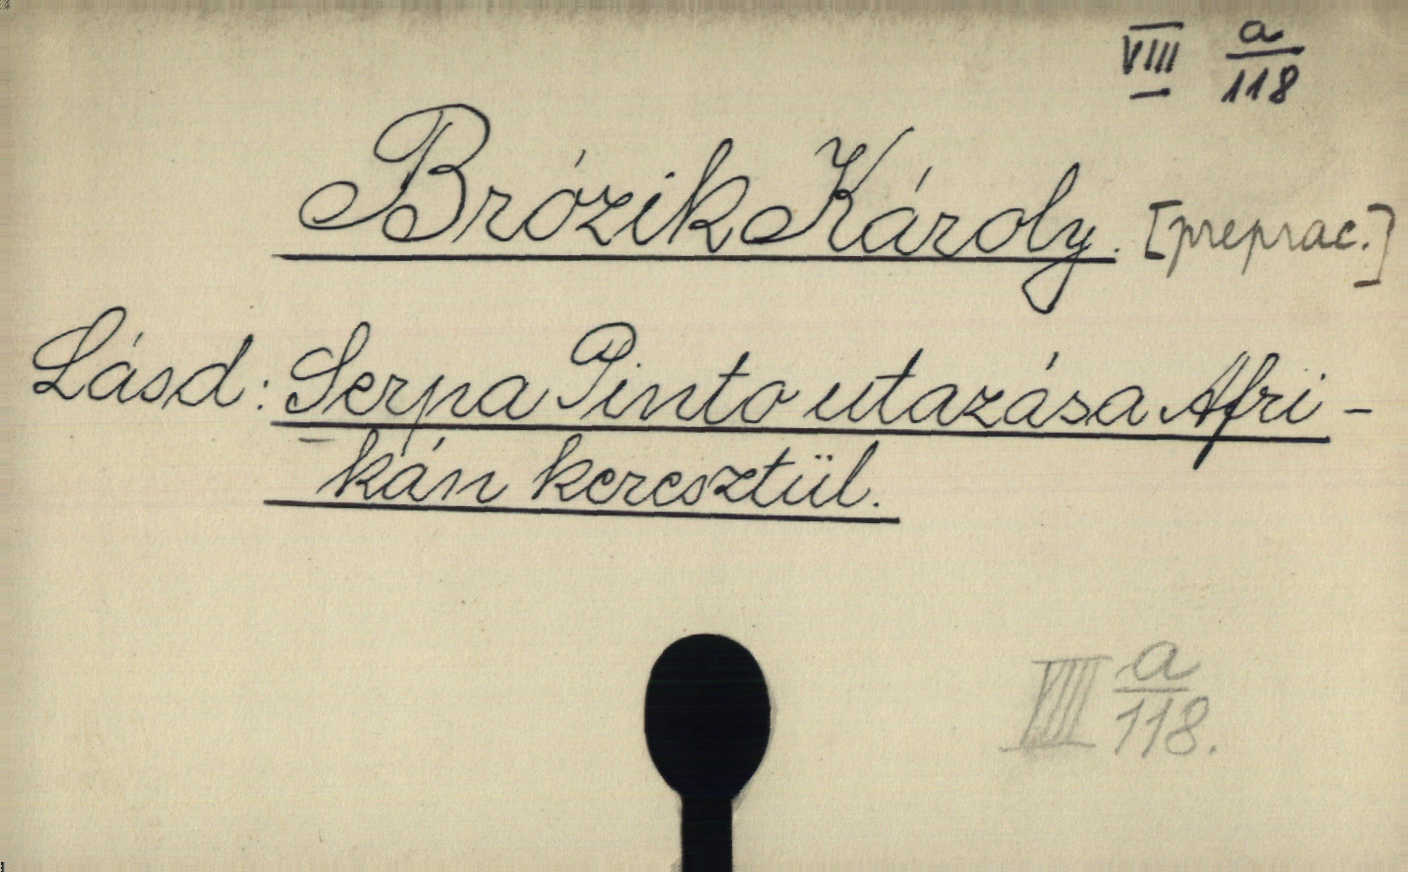 VIII a/118
Brózik Károly. [preprac.]
Lásd: Serpa Pinto utazása Afri-
kán keresztül.
VIII a/118.